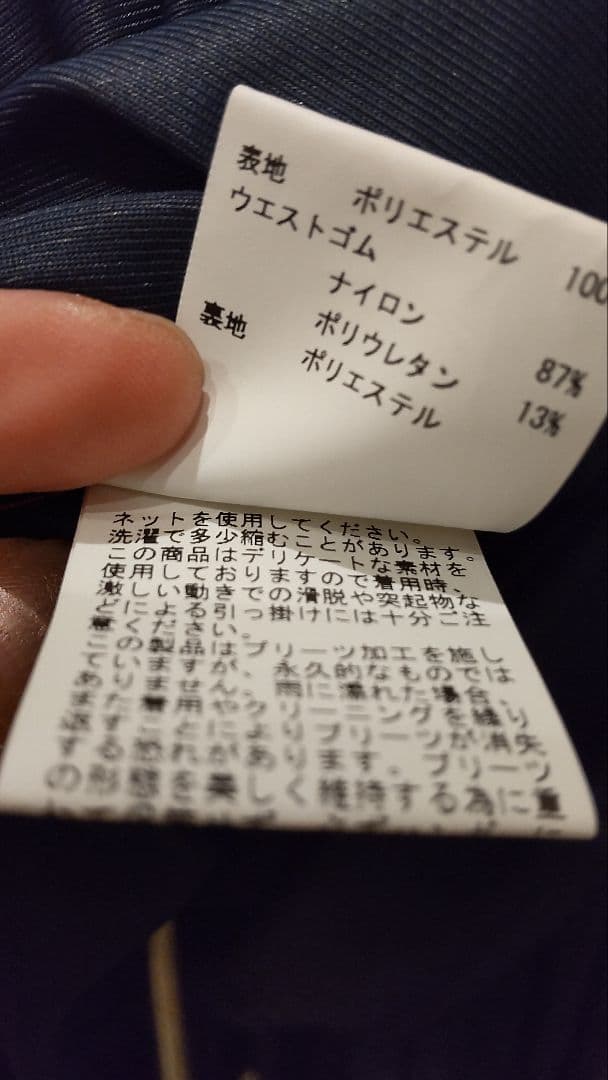 表地 ポリエステル 100
ウエストゴム
ナイロン 87%
裏地 ポリウレタン 13%
ポリエステル
ネットを使用してください。
洗濯で多少縮むことがあります。
この商品はデリケートな素材を
使用しておりますので着用時、
激しい動きでの滑脱や突起物な
どによる引っ掛けには十分ご注
意ください。
この製品はプリーツ加工を施し
ていますが、永久的なものでは
ありません。雨に濡れた場合、
また着用やクリーニングを繰り
返すとによりプリーツが消失
する恐れがあります。プリーツ
の形態を美しく維持する為に重